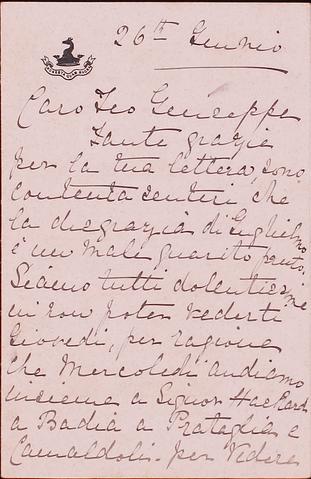 26th Giunio
Caro Zeo Geuseppe
Tante grazie
per la tua lettera, sono
contenta sentire che
la disgrazia di Guglielmo
è un male guarito presto.
Siamo tutti dolentissime
in non poter vederti
Giovedi, per ragione
che Mercoledi andiamo
insieme a Signor
a Badia a Prataglia e
Camaldoli - per vedere